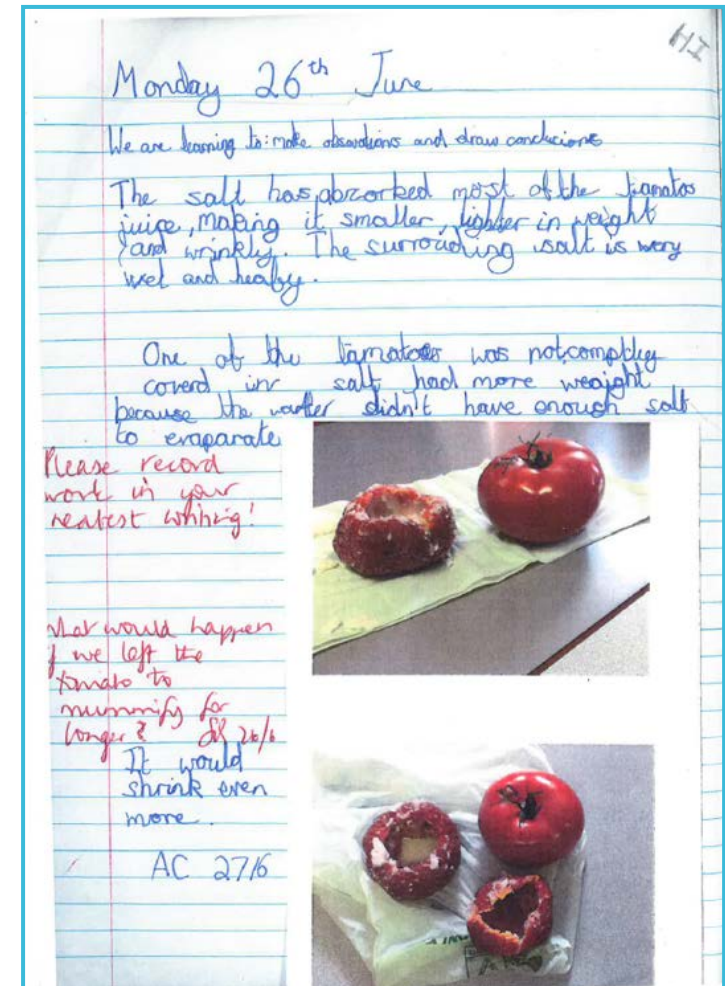 HI
Monday 26th June
We are learning to: make obsevations and draw conclusions
The salt has abzorbed most of the tamatos
juice, making it smaller, lighter in weight
and wrinkly. The surrouding salt is very
wet and heaby.
One of the tamatoes was not compldey
coverd in salt had more weaight
because the waoter didn't have enough salt
to evaparate
Please record
work in your
neatest writing!
What would happen
if we left the
tomato to
mummify for
longer? 26/6
It would
shrink even
more.
AC 27/6